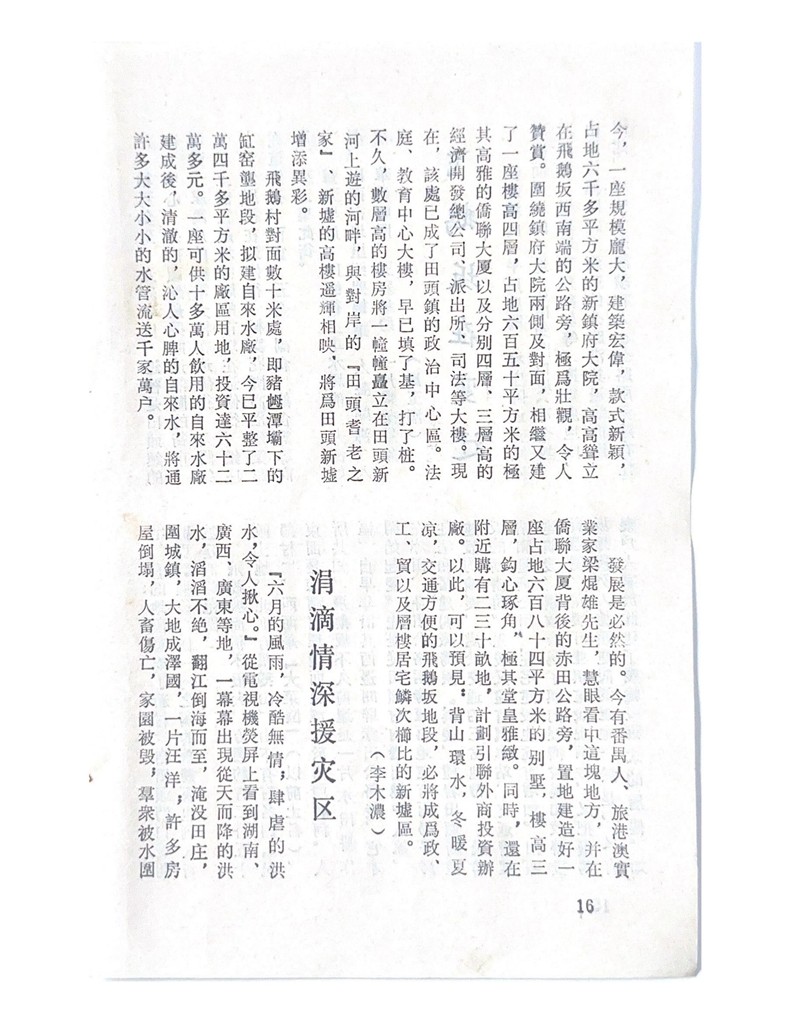 今，一座規模龐大，建築宏偉，款式新穎，
占地六千多平方米的新鎮府大院，高高聳立
在飛鵝坂西南端的公路旁，極爲壯觀，令人
贊賞。圍繞鎮府大院兩側及對面，相繼又建
了一座樓高四層，占地六百五十平方米的極
其高雅的僑聯大厦以及分别四層、三層高的
經濟開發總公司、派出所、司法等大樓。現
在，該處已成了田頭鎮的政治中心區。法
庭、教育中心大樓，早已填了基，打了桩。
不久，數層高的樓房將一幢幢矗立在田頭新
河上遊的河畔，與對岸的『田頭耆老之
家』、新墟的高樓遥輝相映，將爲田頭新墟
增添異彩。
飛鵝村對面數十米處，即豬乸潭壩下的
缸窑壟地段，拟建自來水廠，今已平整了二
萬四千多平方米的廠區用地，投資達六十二
萬多元。一座可供十多萬人飲用的自來水廠
建成後，清澈的，沁人心脾的自來水，將通
許多大大小小的水管流送千家萬户。
發展是必然的。今有番禺人、旅港澳實
業家梁焜雄先生，慧眼看中這塊地方，并在
僑聯大厦背後的赤田公路旁，置地建造好一
座占地六百八十四平方米的别墅，樓高三
層，鈎心琢角，極其堂皇雅緻。同時，還在
附近購有二三十畝地，計劃引聯外商投資辦
廠。以此，可以預見：背山環水，冬暖夏
凉，交通方便的飛鵝坂地段，必將成爲政、
工、貿以及層樓居宅鱗次櫛比的新墟區。
（李木濃）
涓滴情深援灾区
『六月的風雨，冷酷無情；肆虐的洪
水，令人揪心。』從電視機熒屏上看到湖南、
廣西、廣東等地，一幕幕出現從天而降的洪
水，滔滔不絶，翻江倒海而至，淹没田庄，
圍城鎮，大地成澤國，一片汪洋；許多房
屋倒塌，人畜傷亡，家園被毁；羣衆被水圍
16